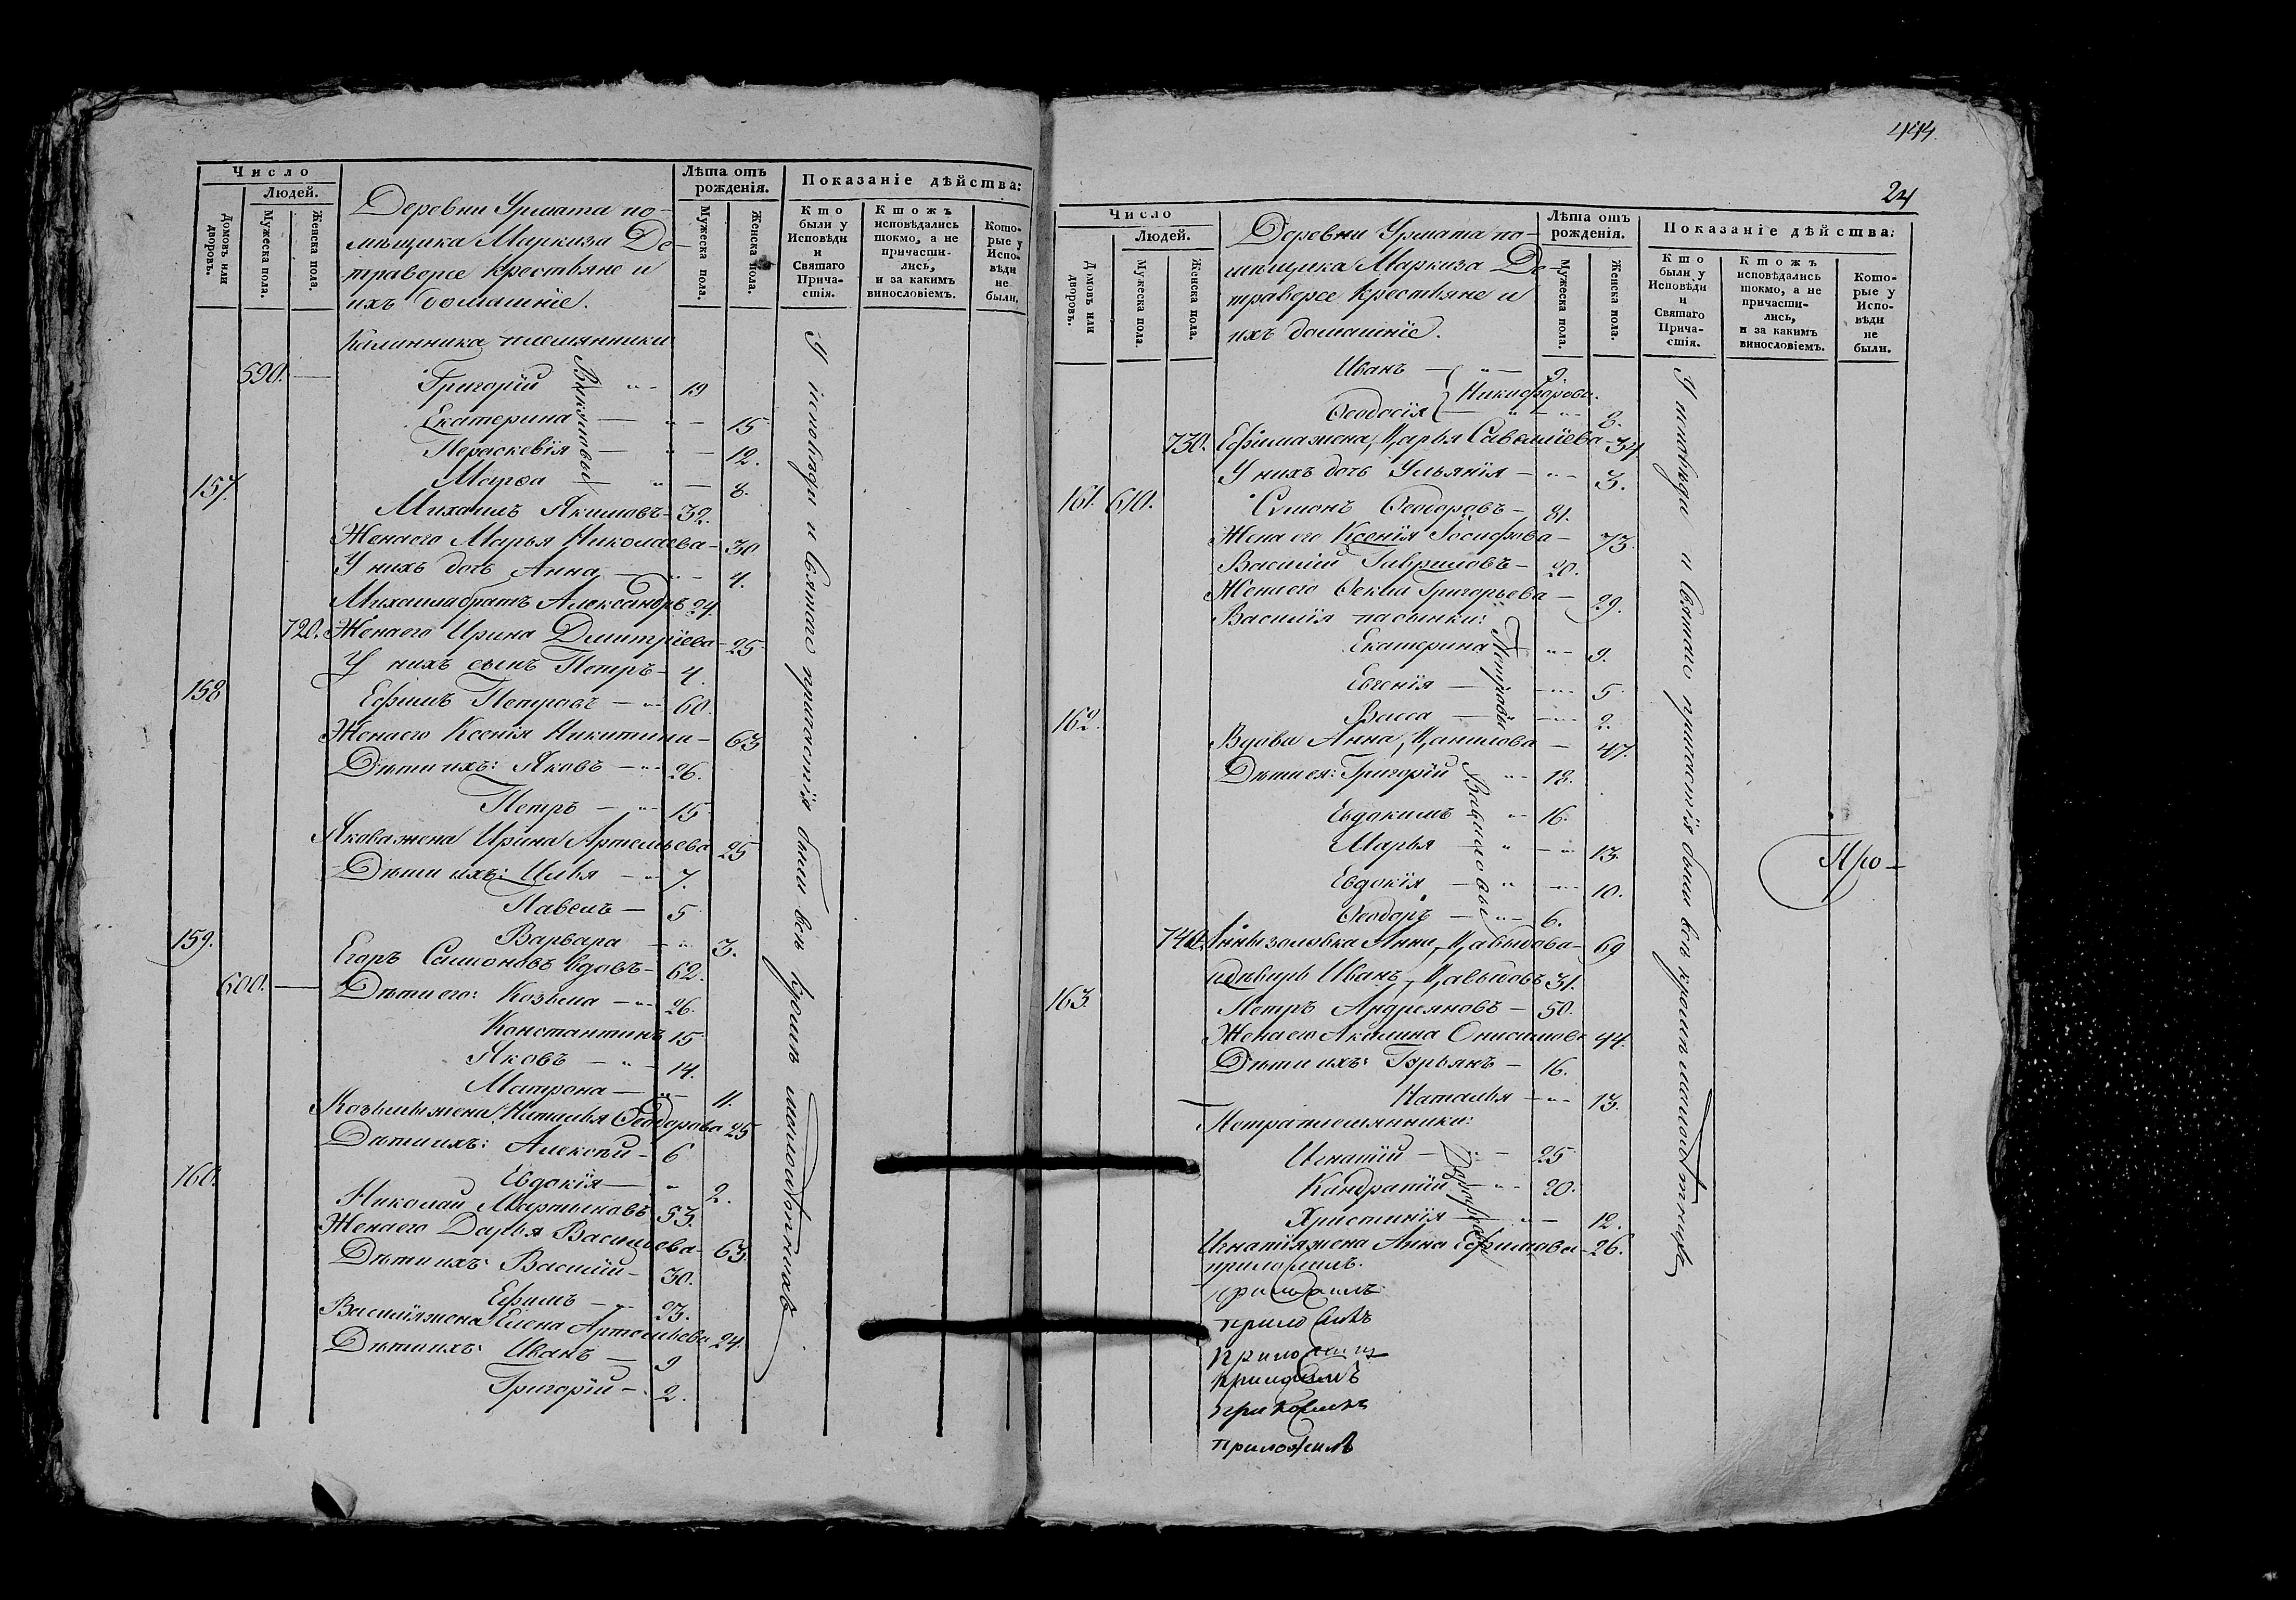 Число
Людей.
Домовъ или дворовъ.
Мужеска пола.
Женска пола.
Лѣта отъ рожденія.
Мужеска пола.
Женска пола.
Показаніе дѣйства:
Кто были у Исповѣди и Святаго Прича-стія.
Ктожъ исповѣдались токмо, а не причасти-лись, и за какимъ винословіемъ.
Кото-рые у Испо-вѣди не были.
Деревни Урмата по-
мѣщика Маркиза Де-
траверсе крестьяне и
ихъ домашніе.
племянники
590. Григорій 19
Екатерина 15
Параскевія 12.
Марѳа 8.
Викуловы
157. Михаилъ Якимовъ 32.
Жена его Марья Николаева 30
У нихъ дочь Анна 4.
Михаила братъ Александръ 24.
720. Жена его Ирина Дмитріева 25
У нихъ сынъ Петръ 4.
158 Ефимъ Петровъ 60.
Жена его Ксенія Никитина 63
Дѣти ихъ: Яковъ 26.
Петръ 15
Якова жена Ирина Артемьева 25
Дѣти ихъ: Илья 7.
Павелъ 5
Варвара 3.
159. Егоръ Симоновъ вдовъ 62.
600. Дѣти его: Козьма 26.
Константинъ 15
Яковъ 14.
Матрона 11.
Козьмы жена Наталья Ѳеодорова 25
Дѣти ихъ: Алексѣй 6
Евдокія 2.
160. Николай Мартыновъ 53.
Жена его Дарья Васильева 63.
Дѣти ихъ: Василій 30.
Ефимъ 23.
Василія жена Елена Артемьева 24.
Дѣти ихъ: Иванъ 9
Григорій 2.
У исповѣди и Святаго причастія были всѣ кромѣ малолѣтнихъ
444.
24
Число
Людей.
Домовъ или дворовъ.
Мужеска пола.
Женска пола.
Лѣта отъ рожденія.
Мужеска пола.
Женска пола.
Показаніе дѣйства:
Кто были у Исповѣди и Святаго Прича-стія.
Ктожъ исповѣдались токмо, а не причасти-лись, и за какимъ винословіемъ.
Кото-рые у Испо-вѣди не были.
Деревни Урмата по-
мѣщика Маркиза Де-
траверсе крестьяне и
ихъ домашніе.
Иванъ 9.
Никифорова.
Ѳеодосія 8.
730. Ефима жена Дарья Савельева 34
У нихъ дочь Ульянія 3.
161. 610. Симонъ Ѳеодоровъ 81.
Жена его Ксенія Іосифова 73.
Василій Гавриловъ 20.
Жена его Ѳекла Григорьева 29.
Василія пасынки:
Екатерина 9.
Евгенія 5
Васса 2.
Петровы
162. Вдова Анна Данилова 47.
Дѣти ея: Григорій 18.
Евдокимъ 16.
Марья 13.
Евдокія 10.
Ѳеодоръ 6.
Вавиловы
740. Анны золовка Анна Давыдова 69
деверь Иванъ Давыдовъ 31.
163. Петръ Андреяновъ 50.
Жена его Акилина Онисимова 44.
Дѣти ихъ: Гурьянъ 16.
Наталья 13.
Петра племянники:
Игнатій 25
Кандратій 20.
Христинія 12.
Игнатія жена Анна Ефимова 26.
приложилъ.
приложилъ
У исповѣди и Святаго причастія были всѣ кромѣ малолѣтнихъ
Про-